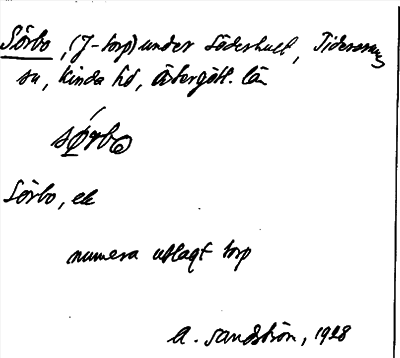 Sörbo, (J-torp) under Söderhult, Tidersrums
sn, Kinda hd, Östergötl. län
sørbo
Sörbo, ek
numera utlagt torp
A. Sandström, 1928